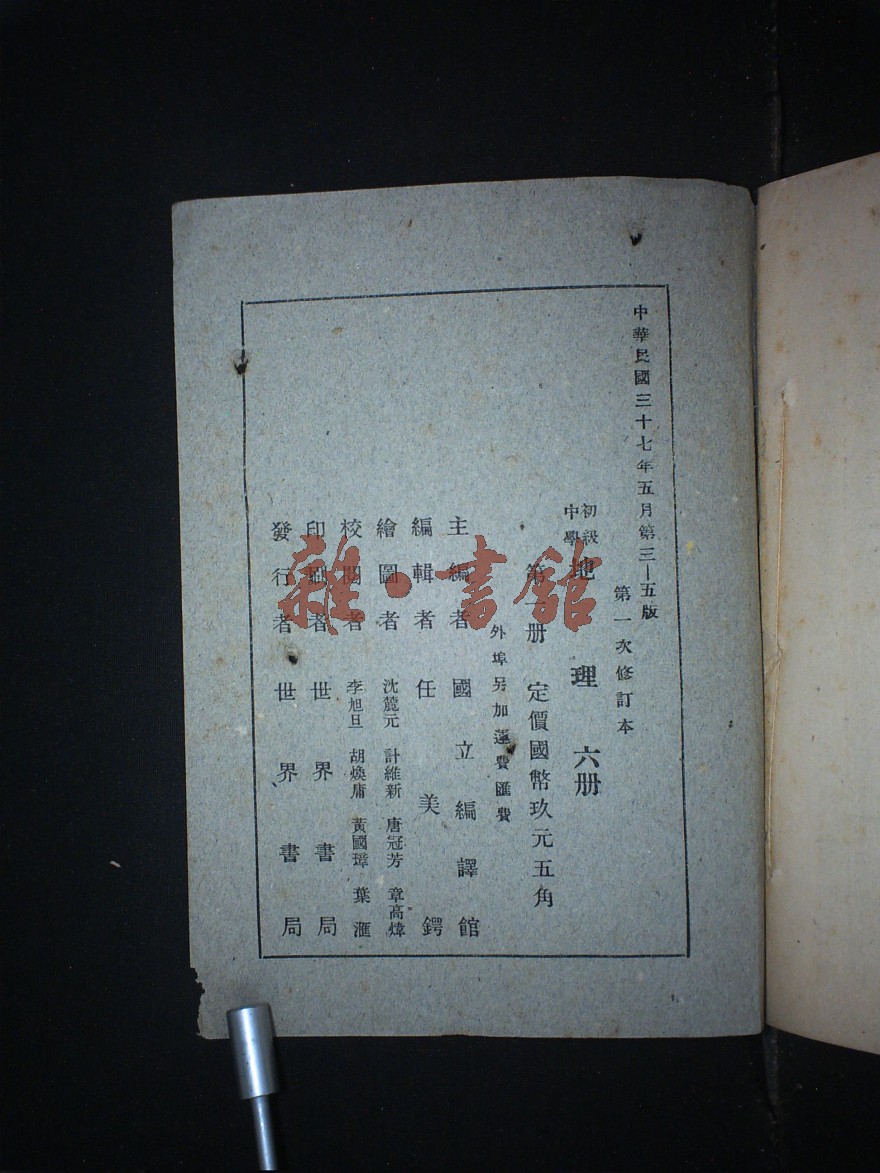 中華民國三十七年五月第三—五版
第一次修訂本
初級中學地理 六册
第一册 定價國幣玖元五角
外埠另加運費匯費
主編者 國立編譯館
編輯者 任美鍔
繪圖者 沈麓元 計維新 唐冠芳 章高煒
校閱者 李旭旦 胡煥庸 黃國璋 葉滙
印刷者 世界書局
發行者 世界書局
雜·書館